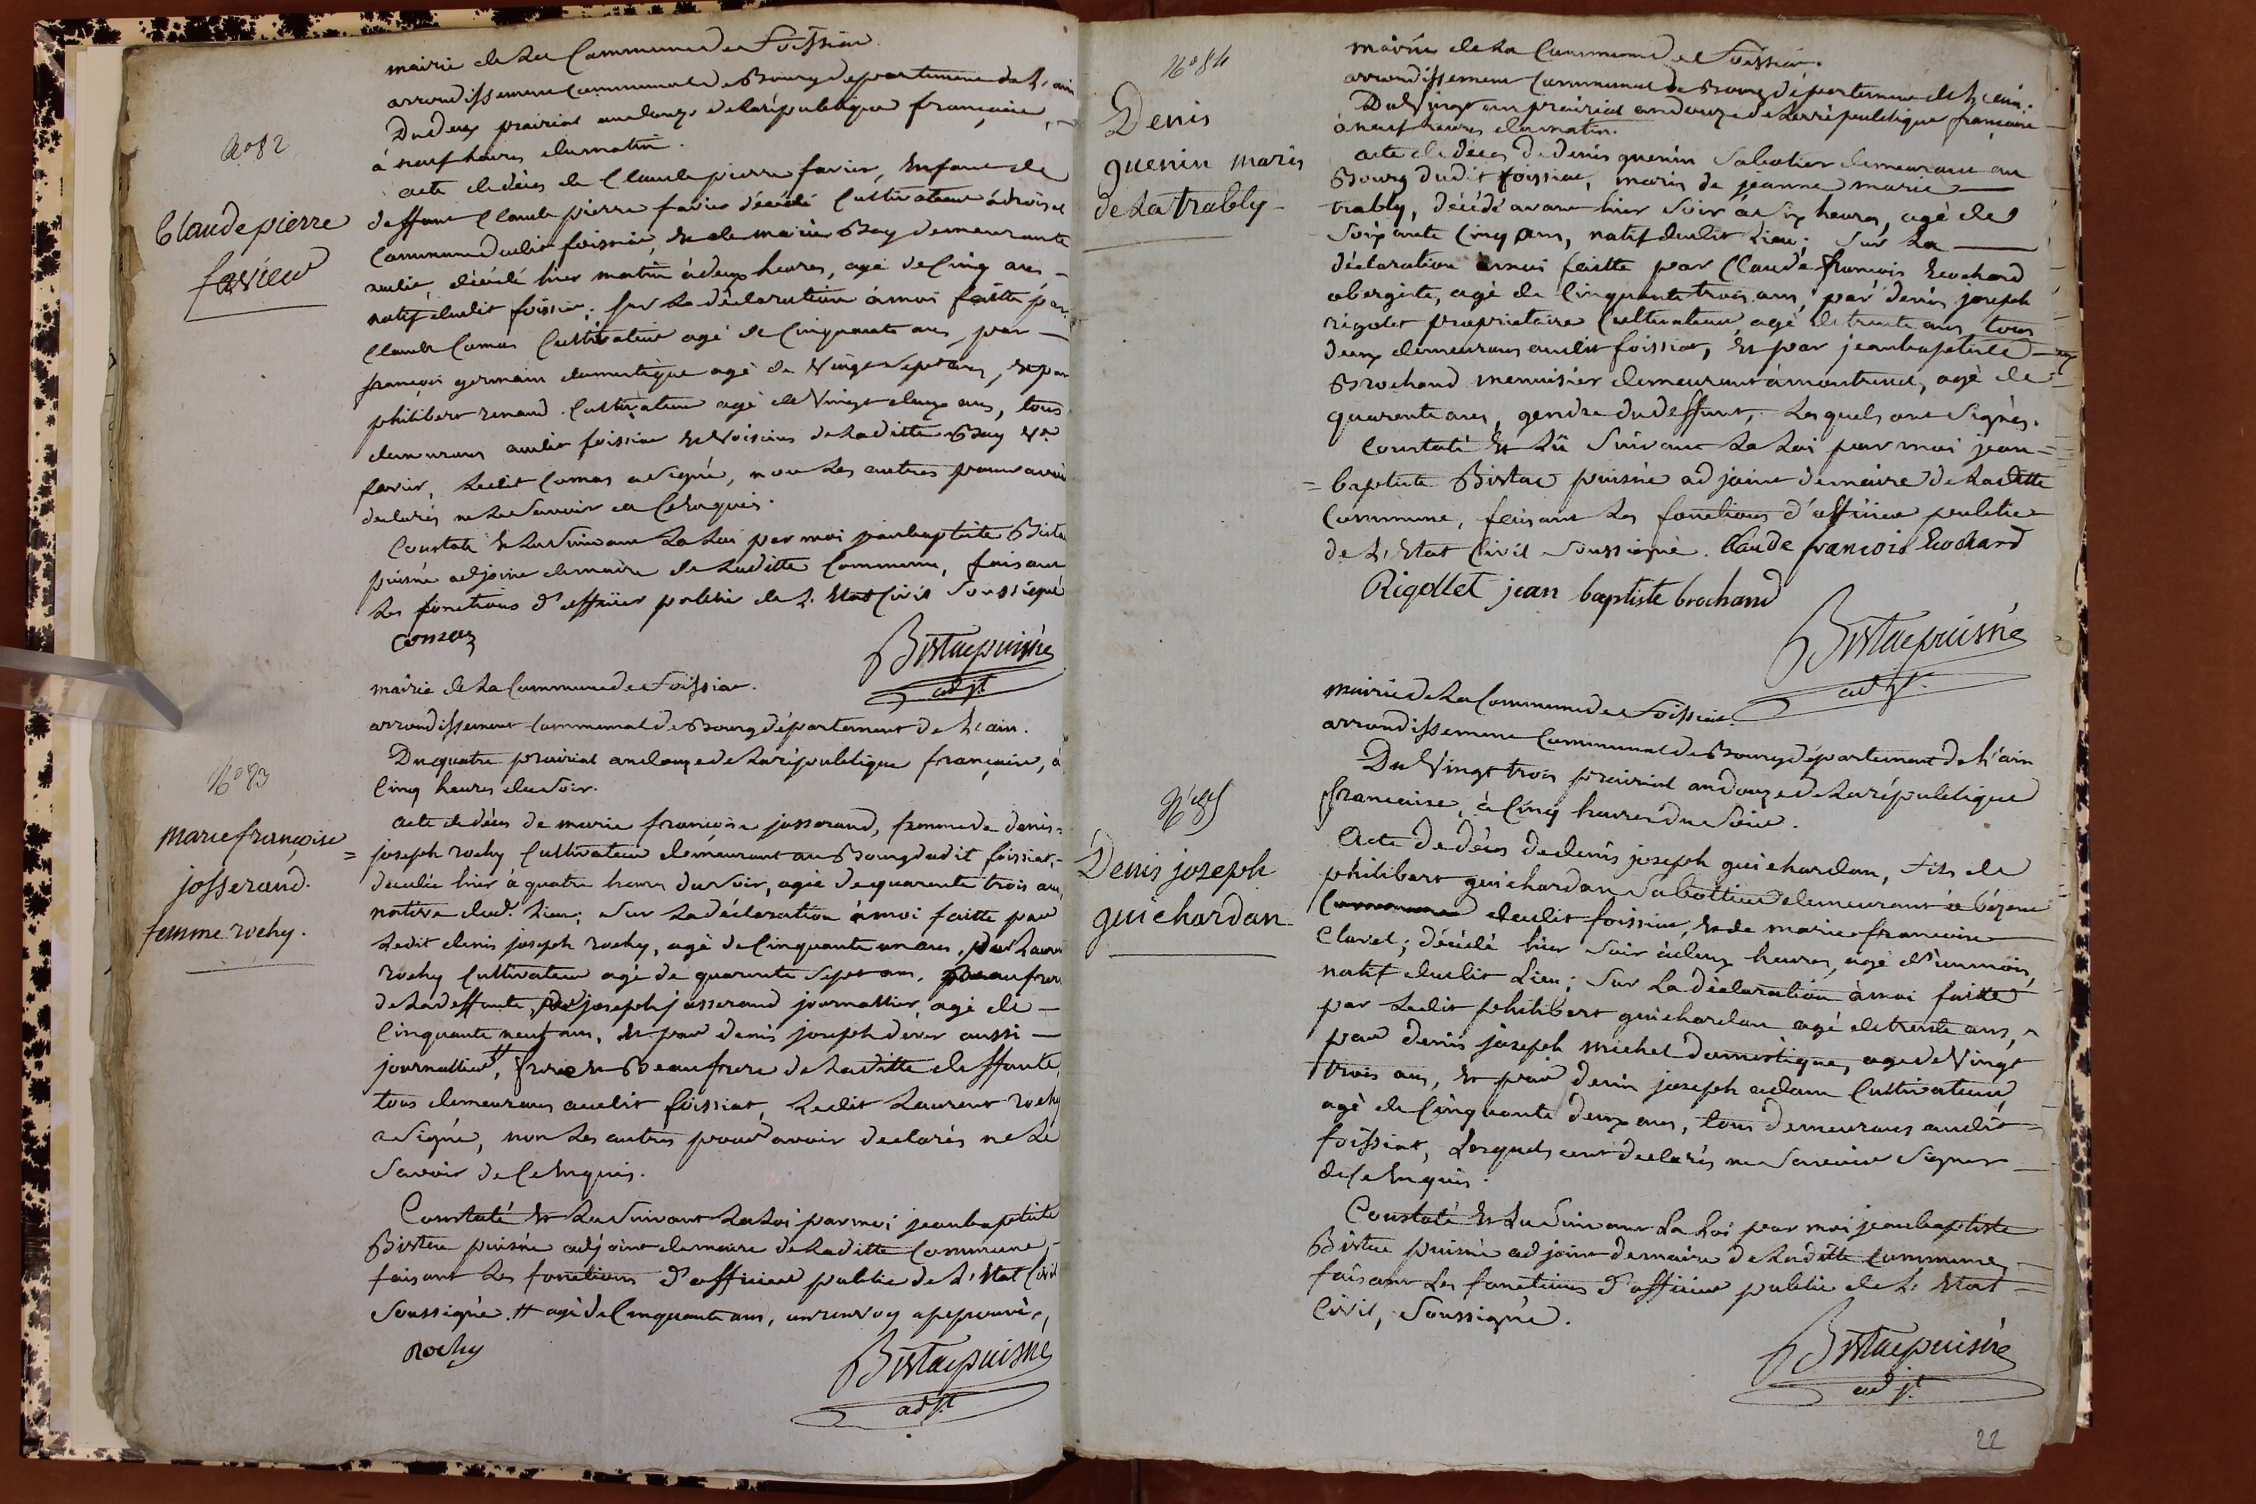 mairie de la Commune de Foissiat.
arrondissement Communal de Bourg département de L'ain
Du deux prairial an douze de la république française,
à neuf heures du matin.
N° 82
Claude pierre
favier
acte de décès de Claude pierre favier, Enfant de
deffunt Claude pierre favier décédé Cultivateur
Commune dudit foissiat, Et de marie Bay demeurante
audit, décédé hier matin à deux heures, agé de Cinq ans
natif dudit foissiat; sur La déclaration à moi faitte par
Claude Comas Cultivateur agé de Cinquante ans, par
françois germain domestique agé de Vingt Sept ans, Et par
philibert renaud Cultivateur agé de Vingt deux ans, tous
demeurans audit foissiat Et Voisins de Laditte Bay Ve
favier, Ledit Comas a signé, non Les autres pour avoir
declarés ne Le Savoir de Ce Enquis.
Constaté Et Lu Suivant La Loi par moi jean baptiste Bistac
puisné adjoint demaire de Laditte Commune, faisant
Les fonctions d'officier public de L'Etat Civil Soussigné
Comas
Bistac puisné
adjt.
mairie de La Commune de Foissiat.
arrondissement Communal de Bourg département de L'ain.
Du quatre prairial an douze de La république française, à
Cinq heures du Soir.
N° 83
marie françoise
josserand.
femme rochy.
acte de décès de marie françoise josserand, femme de denis
= joseph rochy Cultivateur demeurant au Bourg dudit foissiat,
décédée hier à quatre heures du soir, agée de quarente trois ans
native dud. Lieu; Sur La déclaration à moi faitte par
Ledit denis joseph rochy, agé de Cinquante un ans, par Laurent
rochy Cultivateur agé de quarente Sept ans, Beaufrere
de Ladeffunte, par joseph josserand journallier, agé de
Cinquante neuf ans, Et par denis joseph aussi
journallier #, frere Et Beaufrere de Laditte deffunte,
tous demeurans audit foissiat, Ledit Laurent rochy
a Signé, non Les autres pour avoir declarés ne Le
Savoir de Ce Enquis.
Constaté Et Lu Suivant La Loi par moi jean baptiste
Bistac puisné adjoint demaire de Laditte Commune,
faisant Les fonctions d'officier public de L'Etat Civil
Soussigné. # agé de Cinquante ans, un renvoy approuvé,
Rochy
Bistac puisné
adjt.
mairie de La Commune de Foissiat.
arrondissement Communal de Bourg département de L'ain.
Du Vingt un prairial an douze de La république française
à neuf heures du matin.
N° 84
Denis
quenin maris
de La trably
acte de décès de denis quenin Sabotier demeurant au
Bourg dudit foissiat, maris de jeanne marie
trably, décédé avant hier Soir à Six heures, agé de
Soixante Cinq ans, natif dudit Lieu; Sur La
déclaration à moi faitte par Claude françois Ecochard
abergiste, agé de Cinquante trois ans, par denis joseph
rigolet proprietaire Cultivateur, agé de trente ans, tous
deux demeurans audit foissiat, Et par jean baptiste
Brochand menuisier demeurant à montrevel, agé de
quarente ans, gendre du deffunt; Lesquels ont Signés.
Constaté Et Lu Suivant La Loi par moi jean=
= baptiste Bistac puisné adjoint demaire de Laditte
Commune, faisant Les fonctions d'officier public
de L'Etat Civil Soussigné. Claude françois Ecochard
Rigollet jean baptiste brochand
Bistac puisné
adjt.
mairie de La Commune de Foissiat.
arrondissement Communal de Bourg département de L'ain
Du Vingt trois prairial an douze de La république
française, à Cinq heures du Soir.
N° 85
Denis joseph
guichardan
Acte de décès de denis joseph guichardan, fils de
philibert guichardan Sabottier demeurant à
dudit foissiat, Et de marie françoise
Clavel; décédé hier Soir à deux heures, agé d'un mois,
natif dudit Lieu; Sur La déclaration à moi faitte
par Ledit philibert guichardan agé de trente ans,
par denis joseph michel domestique, agé de Vingt
trois ans, Et par denis joseph adam Cultivateur,
agé de Cinquante deux ans, tous demeurans audit
foissiat, Lesquels ont declarés ne Savoir Signer
de Ce Enquis.
Constaté Et Lu Suivant La Loi par moi jean baptiste
Bistac puisné adjoint demaire de Laditte Commune,
faisant Les fonctions d'officier public de L'Etat
Civil, Soussigné.
Bistac puisné
adjt.
22